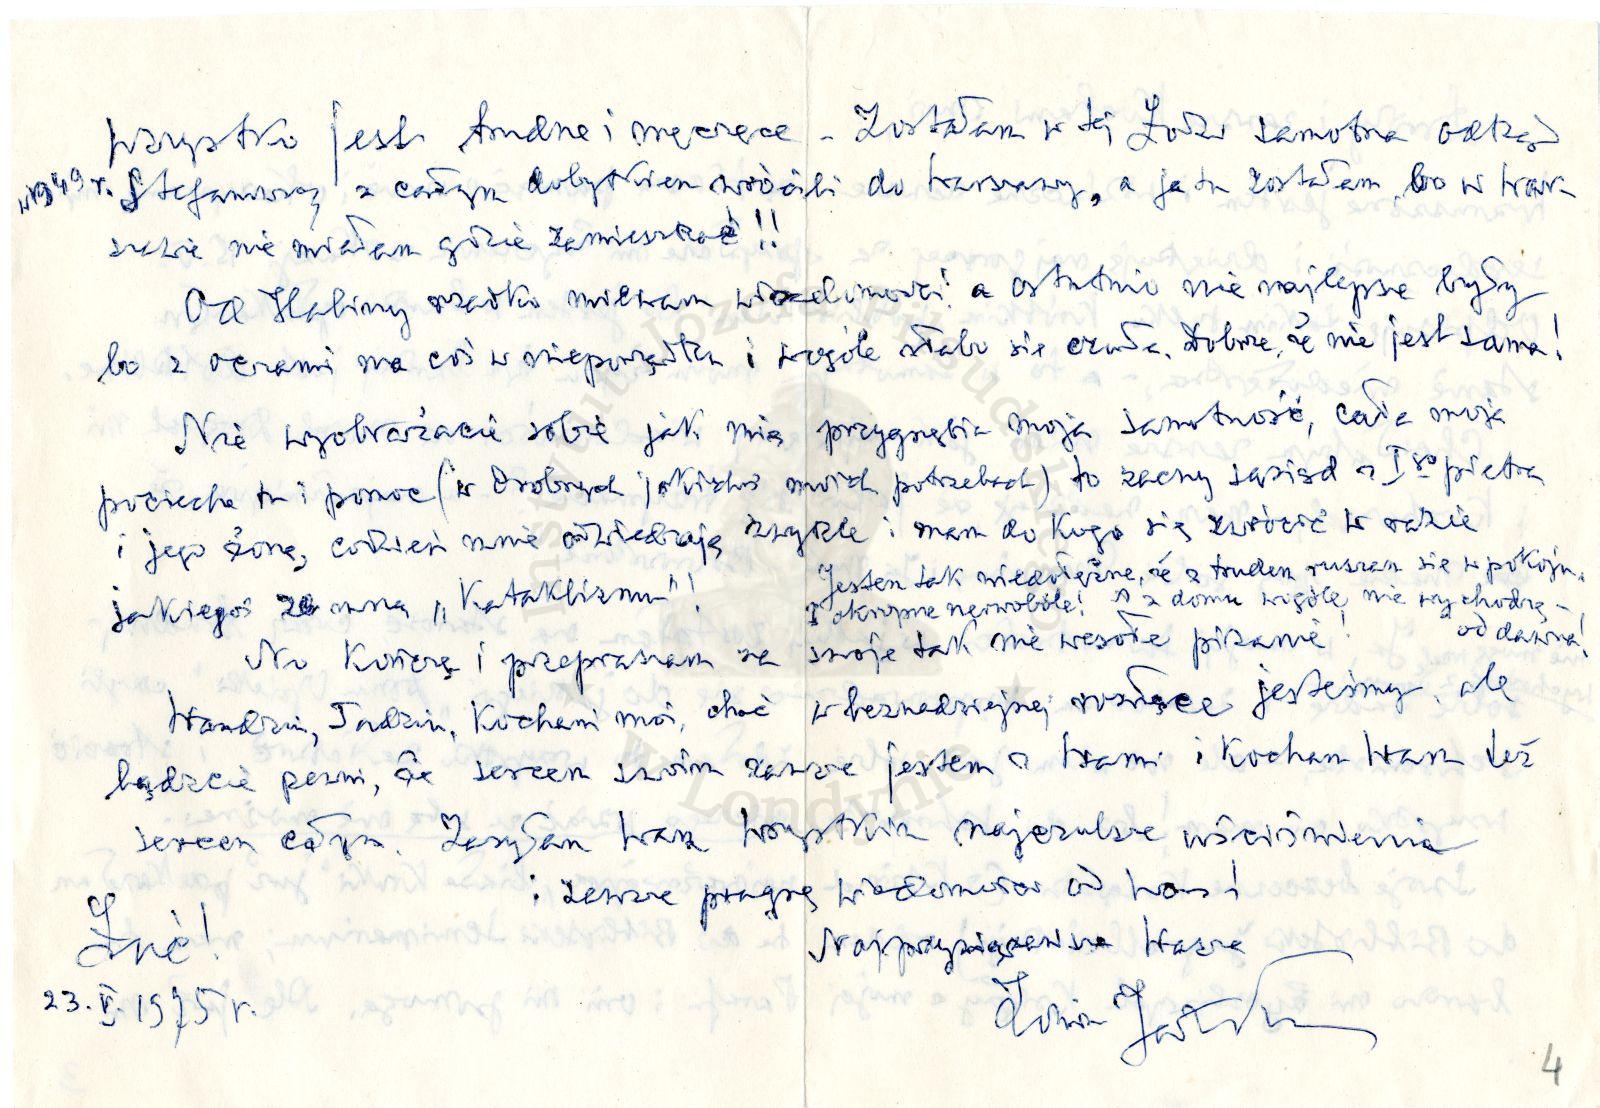 wszystko jest trudne i męczące – Zostałam w tej Łodzi samotna odkąd
w 1949 r. Stefanowicz z całym dobytkiem wrócili do Warszawy, a ja tu zostałam, bo w War
szawie nie miałam gdzie zamieszkać!!
Od Haliny rzadko miewam wiadomości! a ostatnio nie najlepsze były
bo z oczami ma coś w nieporządku i wogóle słabo się czuła. Dobrze, że nie jest sama!
Nie wyobrażacie sobie jak mię przygnębia moja samotność, cała moja
pociecha tu i pomoc (w drobnych jakichś moich potrzebach) to zacny sąsiad z I-go piętra
i jego żona, codzień mnie odwiedzają zwykle i mam do kogo się zwrócić w razie
jakiegoś ze mną „Kataklizmu"!
Jestem tak niedołężna, że z trudem ruszam się w pokoju.
I okropne nerwobóle! z domu wogóle nie wychodzę –
od dawna!
No kończę i przepraszam za swoje tak nie wesołe pisanie!
Wandziu, Tadziu, Kochani moi, choć w beznadziejnej rozłące jesteśmy, ale
bądźcie pewni, że sercem swoim zawsze jestem z Wami i Kocham Was też
sercem całym. Zasyłam Wam wszystkim najczulsze uściśnienia
i zawsze pragnę wiadomości od Was!
Najprzywiązańsza Wasza
Łódź!
23.V.1975 r.
4
Instytut Józefa Piłsudskiego
w Londynie